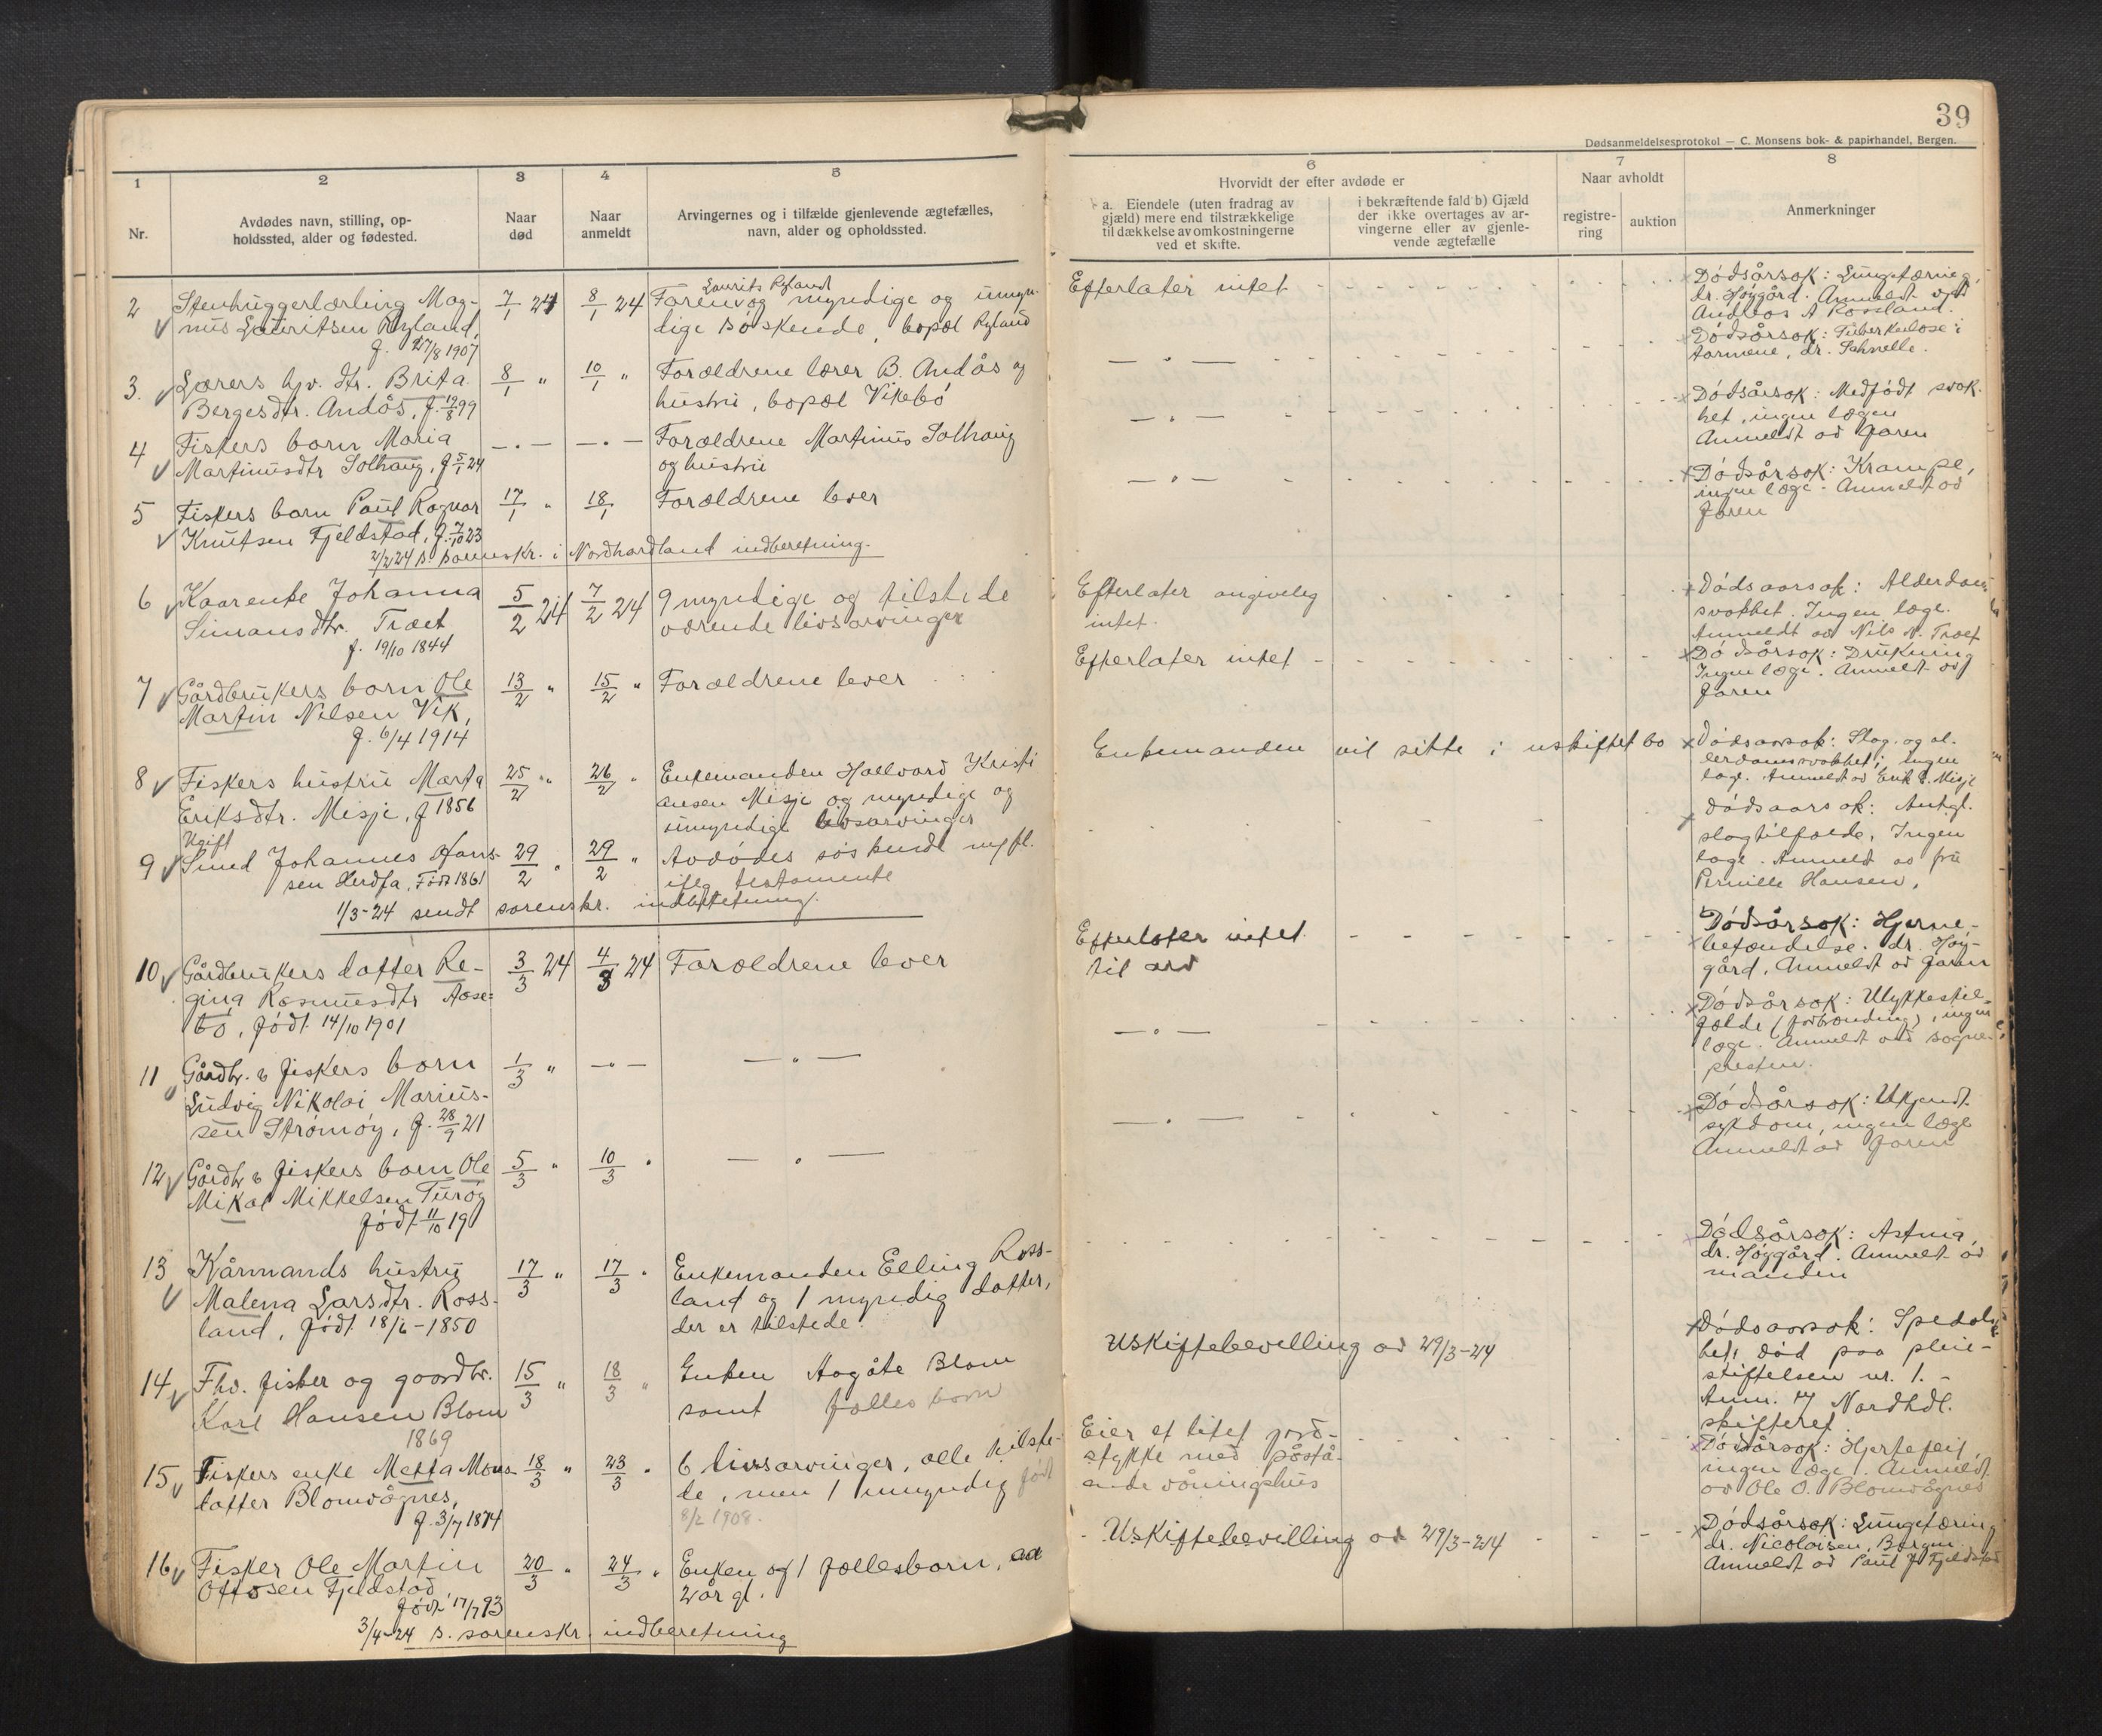 39
Dødsanmeldelsesprotokol — C. Monsens bok- & papirhandel, Bergen.
1
Nr.
2
Avdødes navn, stilling, op-
holdssted, alder og fødested.
3
Naar
død
4
Naar
anmeldt
5
Arvingernes og i tilfælde gjenlevende ægtefælles,
navn, alder og opholdssted.
6
Hvorvidt der efter avdøde er
a. Eiendele (uten fradrag av
gjæld) mere end tilstrækkelige
til dækkelse av omkostningerne
ved et skifte.
i bekræftende fald b) Gjæld
der ikke overtages av ar-
vingerne eller av gjenle-
vende ægtefælle
7
Naar avholdt
registre-
ring
auktion
8
Anmerkninger
2
Stenhuggerlærling Mag-
nus Lauritsen Ryland,
f. 27/8 1907
7/1 24
8/1 24
Laurits Ryland
Faren og myndige og umyn-
dige søskende, bopæl Ryland
Efterlater intet
Dødsårsak: Lungetæring,
dr. Høygård. Anmeldt av
Andreas A Rossland.
3.
Lærers hjv. dtr. Brita
Bergesdtr. Andås, f. 19/8 99
8/1 "
10/1 "
Forældrene lærer B. Andås og
hustru, bopæl Vikebø
— " —
Dødsårsak: Tuberkulose i
tarmene, dr. Schnelle.
4
Fiskers barn Maria
Martinusdtr Solhaug, f 5/1 24
— " —
— " —
Forældrene Martinus Solhaug
og hustru
— " —
Dødsårsak: Medfødt svak-
het, ingen lægen
Anmeldt av faren
5
Fiskers barn Paul Ragnar
Knutsen Fjeldstad, f. 7/10 23
17/1 "
18/1
Forældrene lever
— " —
Dødsårsak: Krampe,
ingen læge. Anmeldt av
faren
2/2 24 s. sorenskr. i Nordhordland indberetning.
6
Kaarenke Johanna
Simonsdtr. Træet
f. 19/10 1844
5/2 24
7/2 24
9 myndige og tilstede
værende livsarvinger
Efterlater angivelig
intet.
Dødsaarsak: Alderdoms
svakhet. Ingen læge.
Anmeldt av Nils N. Træet
7
Gårdbrukers barn Ole
Martin Nilsen Vik,
f. 6/4 1914
13/2 "
15/2 "
Forældrene lever
Efterlater intet
Dødsårsak: Drukning
Ingen læge. Anmeldt av
faren
8
Fiskers hustru Marta
Eriksdtr. Misje, f 1856
25/2 "
26/2 "
Enkemanden Hallvard Kristi
ansen Misje og myndige og
umyndige livsarvinger
Enkemanden vil sitte i uskiftet bo
Dødsaarsak: Slag og al-
derdomssvakhet; Ingen
læge. Anmeldt av Erik E. Misje
9
Ugift
Smed Johannes Hans-
sen Herdla, Født 1861
29/2 "
29/2 "
Avdødes søskende m fl.
iflg testamente
Dødsaarsak: Antgl.
slagtilfælde, Ingen
læge. Anmeldt av fru
Pernille Hansen,
1/3-24 sendt sorenskr. indberetning.
10
Gårdbrukers datter Re-
gina Rasmusdtr Aase-
bø, født 14/10 1901
3/3 24
4/3 24
Forældrene lever
Efterlater intet
til arv
Dødsårsak: Hjerne-
betændelse. dr. Høy-
gård, Anmeldt av faren
11
Gårdbr. & fiskers barn
Ludvig Nikolai Marius-
sen Strømøy, f. 28/9 21
1/3 "
— " —
— " —
— " —
Dødsårsak: Ulykkestil-
fælde (forbrænding), ingen
læge. Anmeldt av sogne-
presten.
12
Gårdbr & fiskers barn Ole
Mikal Mikkelsen Turøy
født 11/10 19
5/3 "
10/3 "
— " —
— " —
Dødsårsak: Ukjendt
sykdom, ingen læge
Anmeldt av faren
13
Kårmands hustru
Malena Larsdtr. Ross-
land, født 18/6-1850
17/3 "
17/3 "
Enkemanden Elling Ross-
land og 1 myndig datter,
der er tilstede.
Dødsårsak: Astma,
dr. Høygård. Anmeldt av
manden
14
Fhv. fisker og gaardbr.
Karl Hansen Blom
1869
15/3 "
18/3 "
Enken Aagåte Blom
samt fælles barn
Uskiftebevilling av 29/3-24
Dødsaarsak: Spedalsk
het, død paa pleie-
stiftelsen nr. 1. -
Anm. til Nordhdl.
skifteret
15
Fiskers enke Metta Mons-
datter Blomvågnes,
f. 3/7 1874
18/3 "
23/3 "
6 livsarvinger, alle tilste-
de, men 1 umyndig født
8/2 1908.
Eier et litet jord-
stykke med påstå-
ende våningshus
Dødsårsak: Hjertefeil,
ingen læge. Anmeldt
av Ole O. Blomvågnes
16
Fisker Ole Martin
Ottosen Fjeldstad,
født 17/7 93
20/3 "
24/3 "
Enken og 1 fællesbarn,
2 år gl.
Uskiftebevilling av 29/3-24
Dødsårsak: Lungetæring
dr. Nicolaisen, Bergen
Anmeldt av Paul J Fjeldstad
3/4-24 s. sorenskr. indberetning